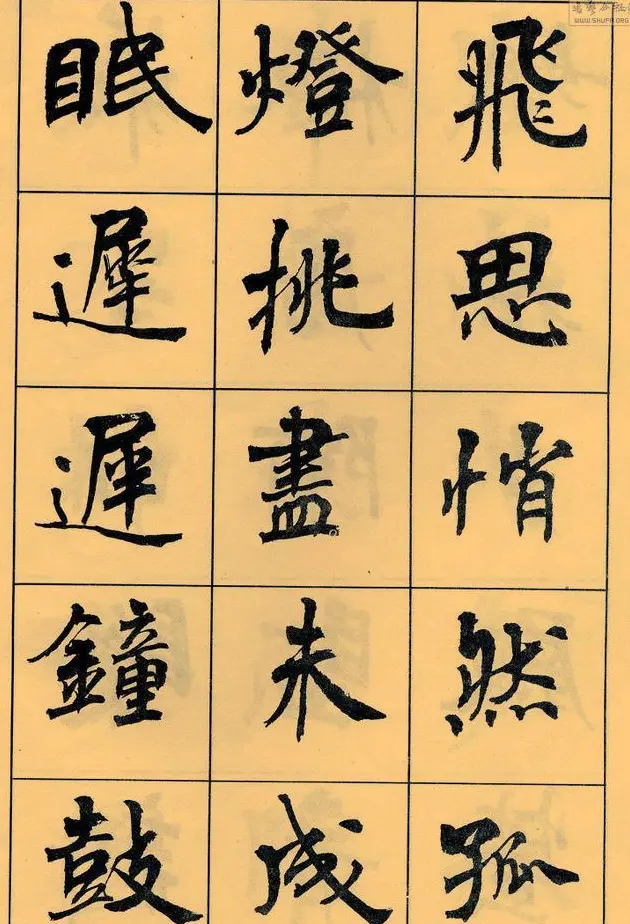 飛思悄然孤
燈挑盡未成
眠遲遲鐘鼓
WWW.SHUFA.ORG